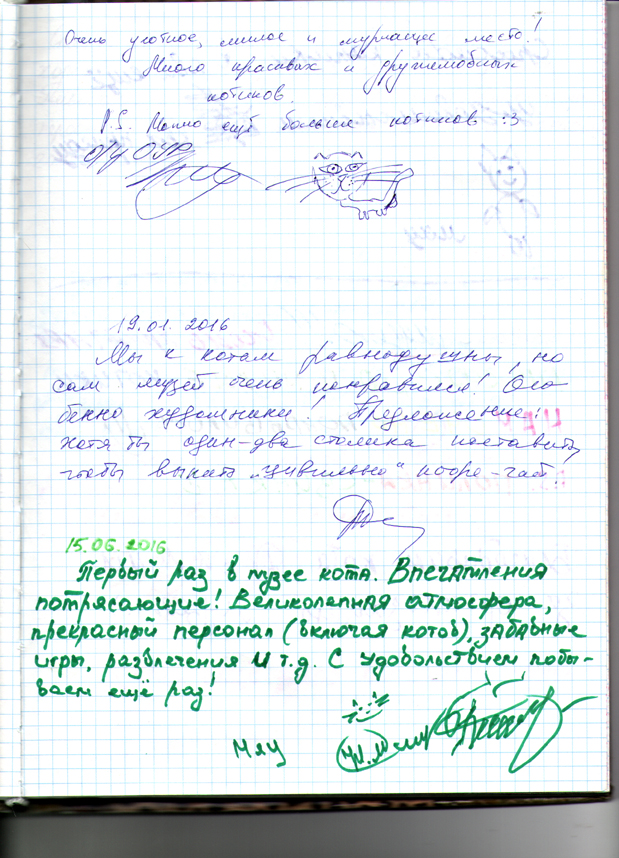 Очень уютное, милое и мурчащее место!
Много красивых и дружелюбных
котиков.
P.S. Можно ещё больше котиков :3
19.01.2016
Мы к котам равнодушны, но
сам музей очень понравился! Осо-
бенно художники! Предложение:
хотя бы один-два столика поставить,
чтобы выпить „цивильно“ кофе-чай.
15.06.2016
Первый раз в музее кота. Впечатления
потрясающие! Великолепная атмосфера,
прекрасный персонал (включая котов), забавные
игры, развлечения и т.д. С удовольствием побы-
ваем ещё раз!
Мяу